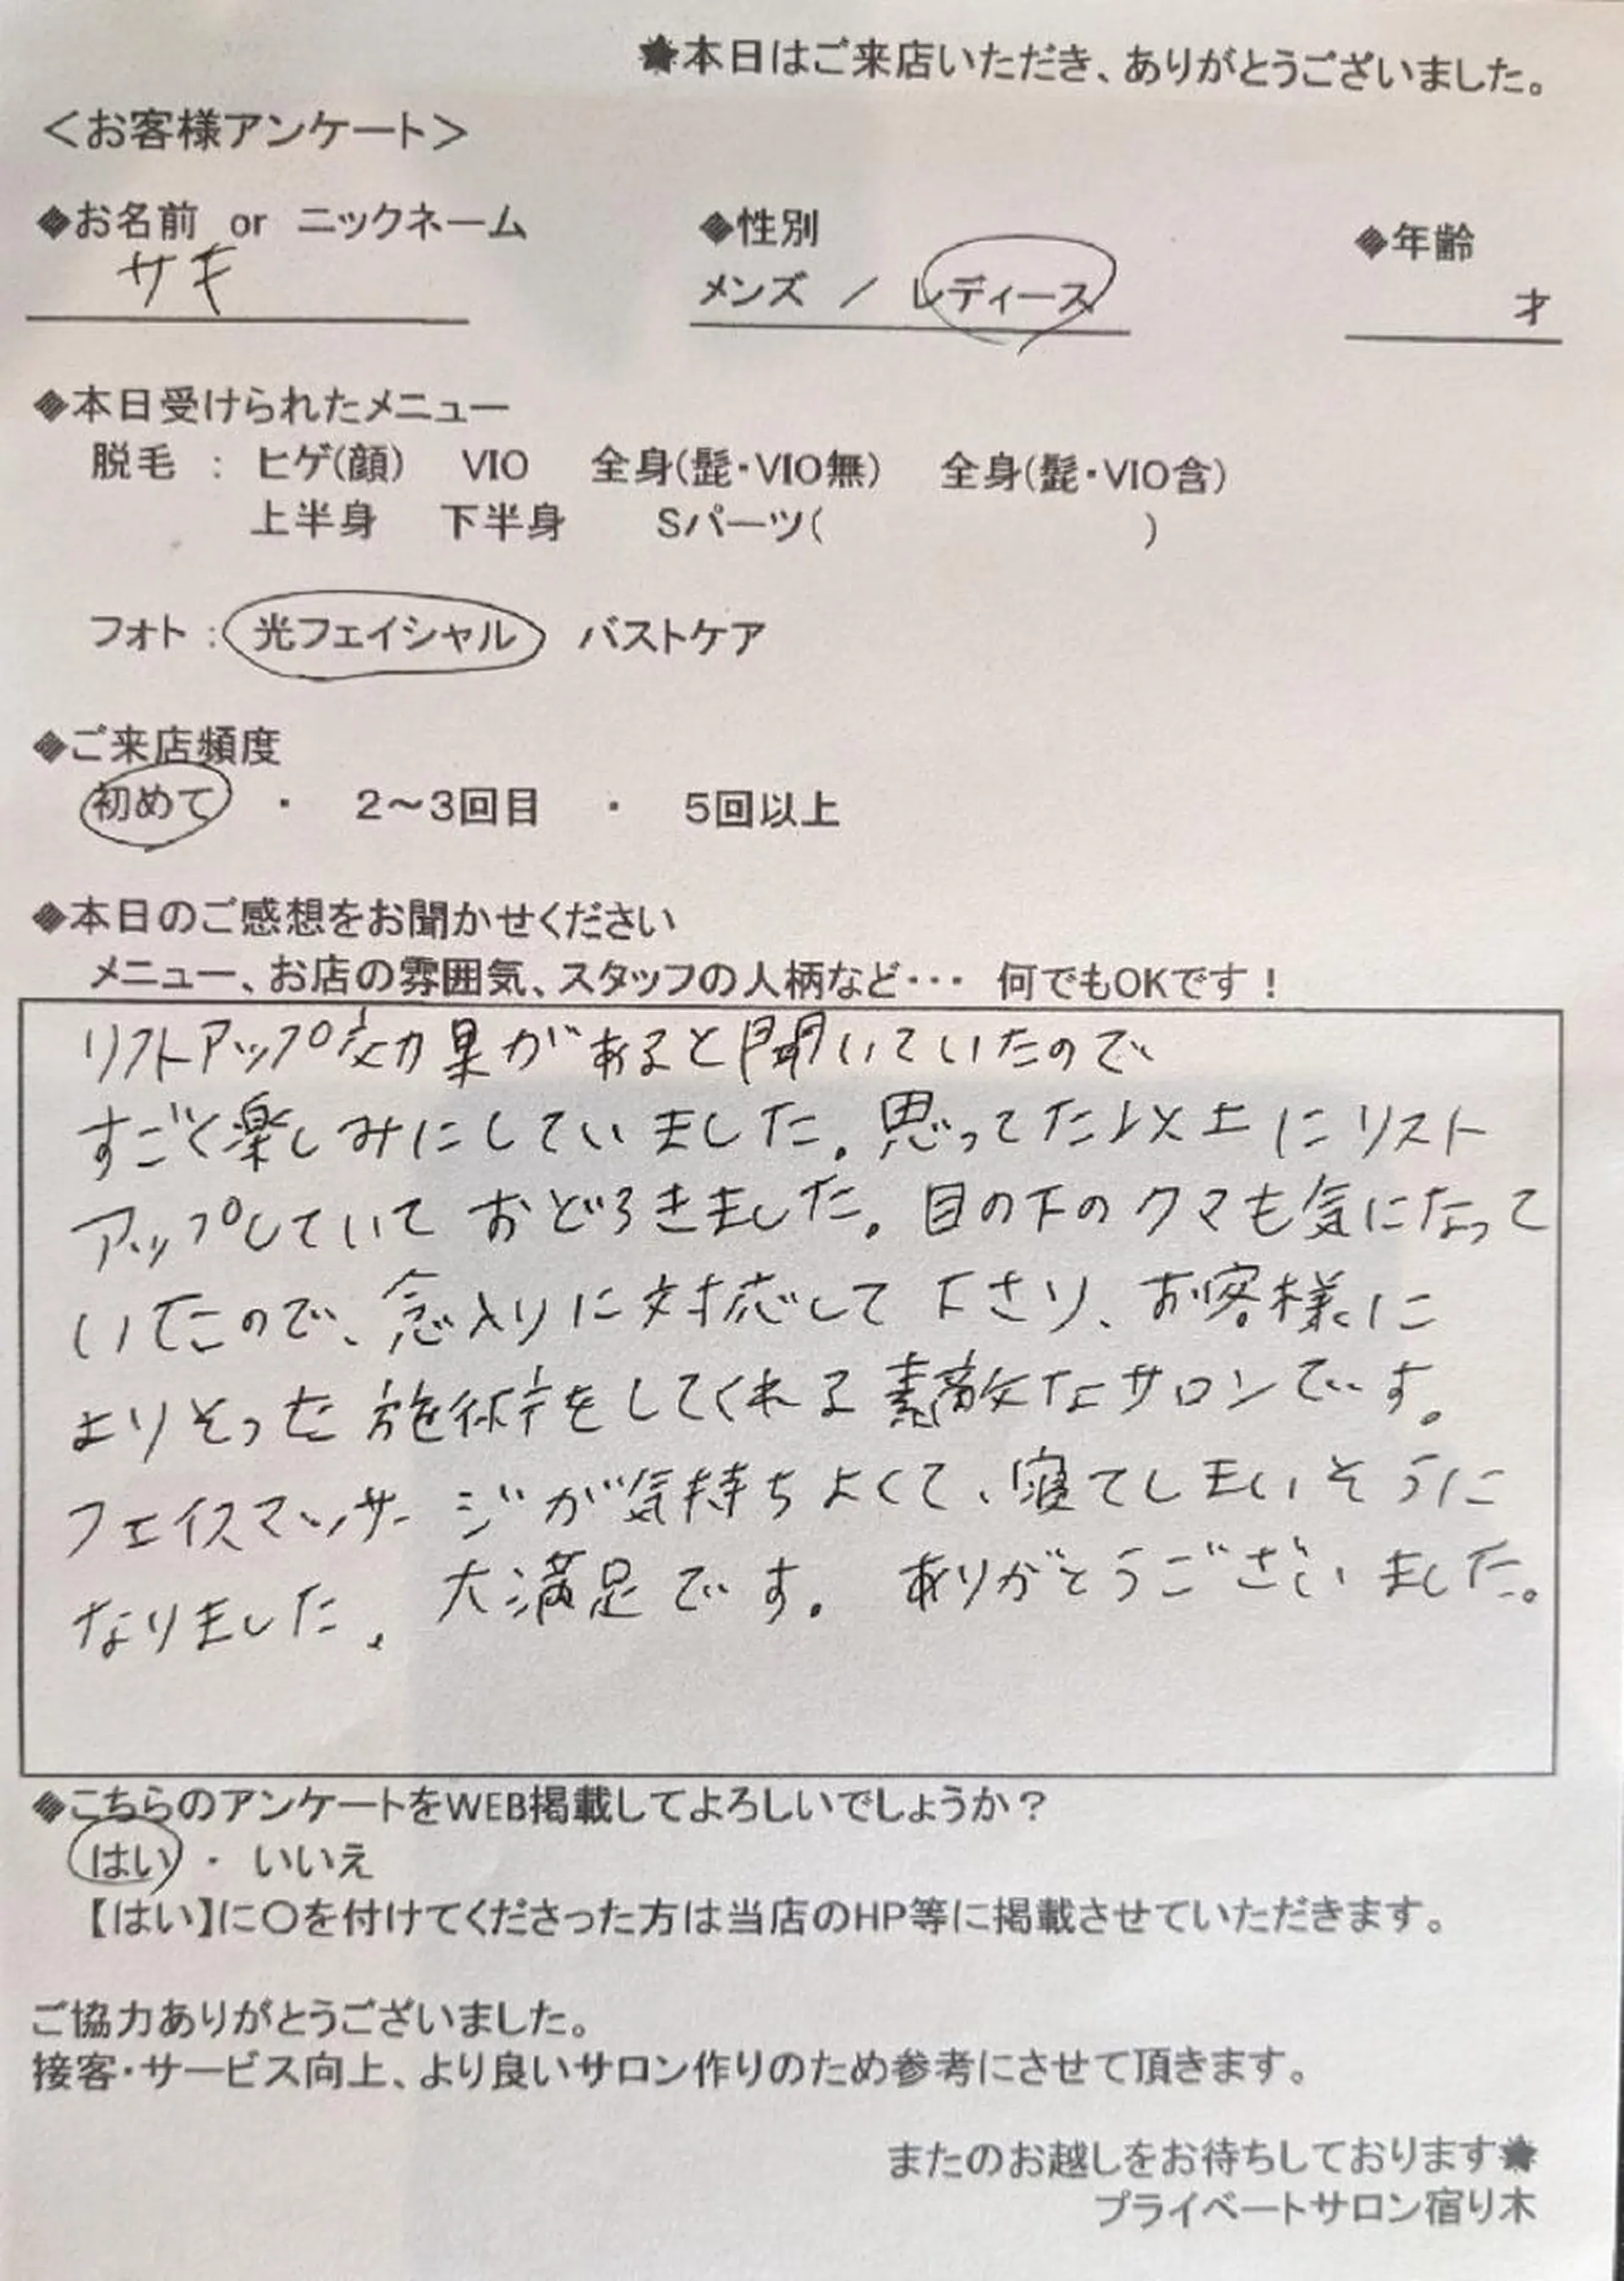 ★本日はご来店いただき、ありがとうございました。
＜お客様アンケート＞
◆お名前 or ニックネーム ◆性別 ◆年齢
サキ メンズ ／ レディース 才
◆本日受けられたメニュー
脱毛 ： ヒゲ(顔) VIO 全身(髭・VIO無) 全身(髭・VIO含)
上半身 下半身 Sパーツ( )
フォト ： 光フェイシャル バストケア
◆ご来店頻度
初めて ・ 2～3回目 ・ 5回以上
◆本日のご感想をお聞かせください
メニュー、お店の雰囲気、スタッフの人柄など・・・ 何でもOKです！
リフトアップ効果があると聞いていたので
すごく楽しみにしていました。思ってた以上にリスト
アップしていておどろきました。目の下のクマも気になって
いたので、念入りに対応して下さり、お客様に
よりそった施術をしてくれる素敵なサロンです。
フェイスマッサージが気持ちよくて、寝てしまいそうに
なりました。大満足です。ありがとうございました。
◆こちらのアンケートをWEB掲載してよろしいでしょうか？
はい ・ いいえ
【はい】に〇を付けてくださった方は当店のHP等に掲載させていただきます。
ご協力ありがとうございました。
接客・サービス向上、より良いサロン作りのため参考にさせて頂きます。
またのお越しをお待ちしております★
プライベートサロン宿り木